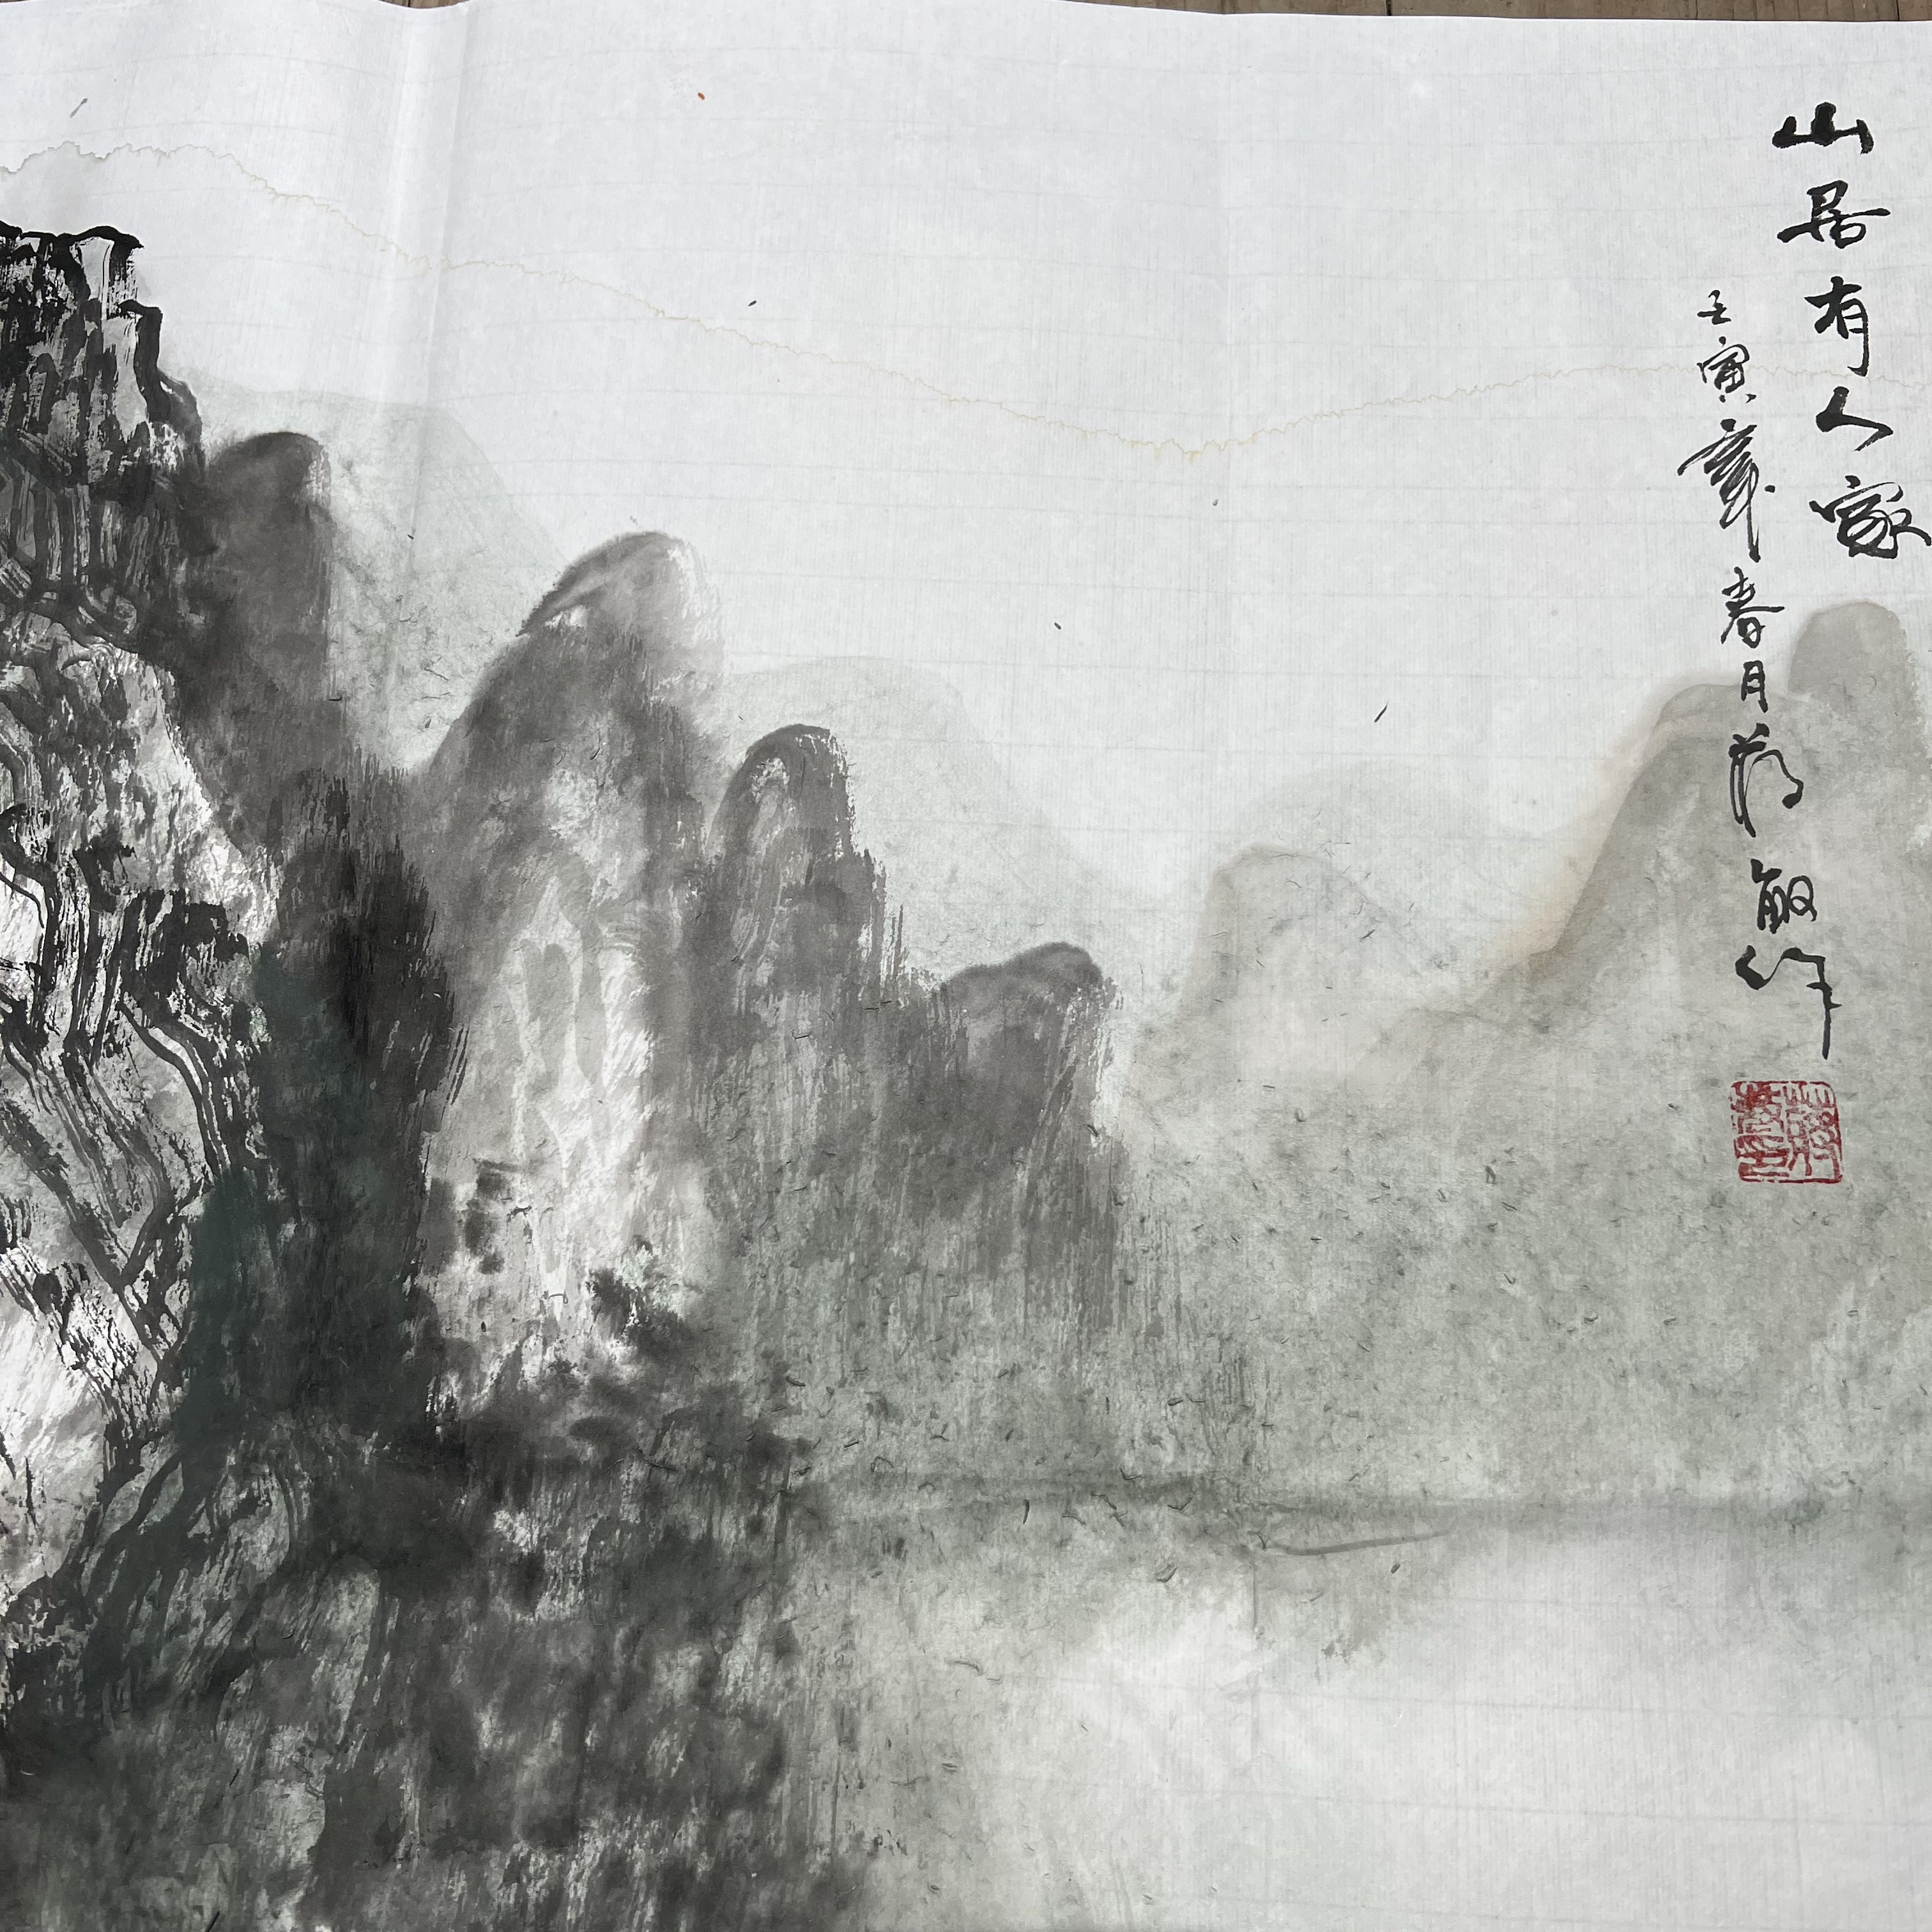 山居有人家
壬寅春月蒋敏作